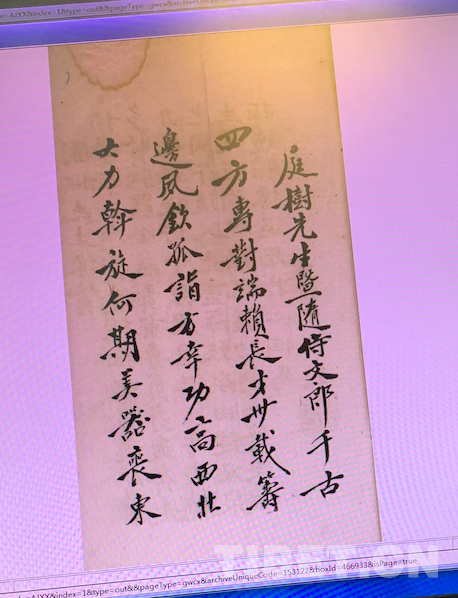 =AJXX&index=1&type=out&&pageType=gwcx&
庭樹先生暨隨侍文郎千古
四方專對端賴長才卅載籌
邊夙欽孤詣方幸功高西北
大力斡旋何期美器喪東
=AJXX&index=1&type=out&&pageType=gwcx&archiveUniqueCode=153122&boxId=466933&isPage=true,